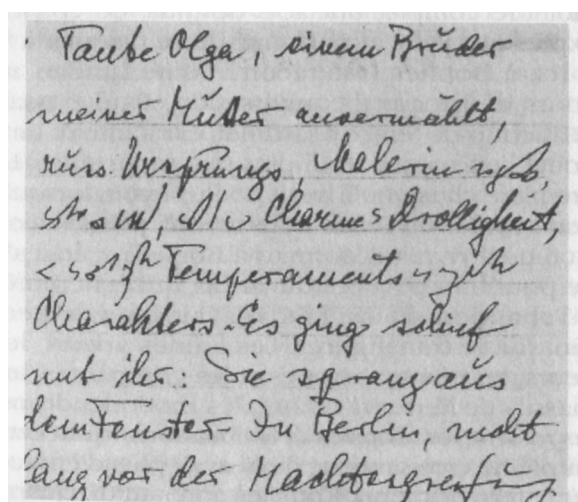 Tante Olga, einem Bruder
meiner Mutter anvermählt,
russ. Ursprungs, Malerin
Charmes Drolligkeit,
Temperaments
Charakters. Es ging schief
mit ihr: Sie sprang aus
dem Fenster. In Berlin, nicht
lang vor der Machtergreifung